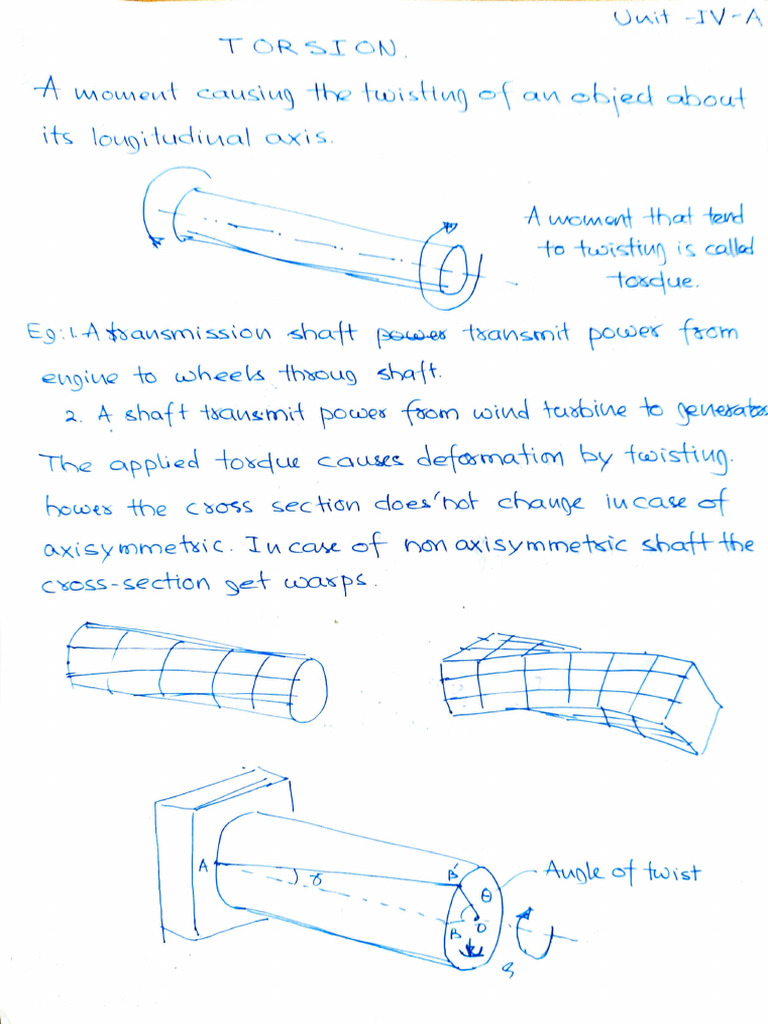 Unit -IV-A
TORSION.
A moment causing the twisting of an object about
its longitudinal axis.
A moment that tend
to twisting is called
torque.
Eg:1. A transmission shaft power transmit power from
engine to wheels throug shaft.
2. A shaft transmit power from wind turbine to generator
The applied torque causes deformation by twisting.
hower the cross section does'not change incase of
axisymmetric. Incase of non axisymmetric shaft the
cross-section get warps.
A
γ
B'
θ
Angle of twist
B
O